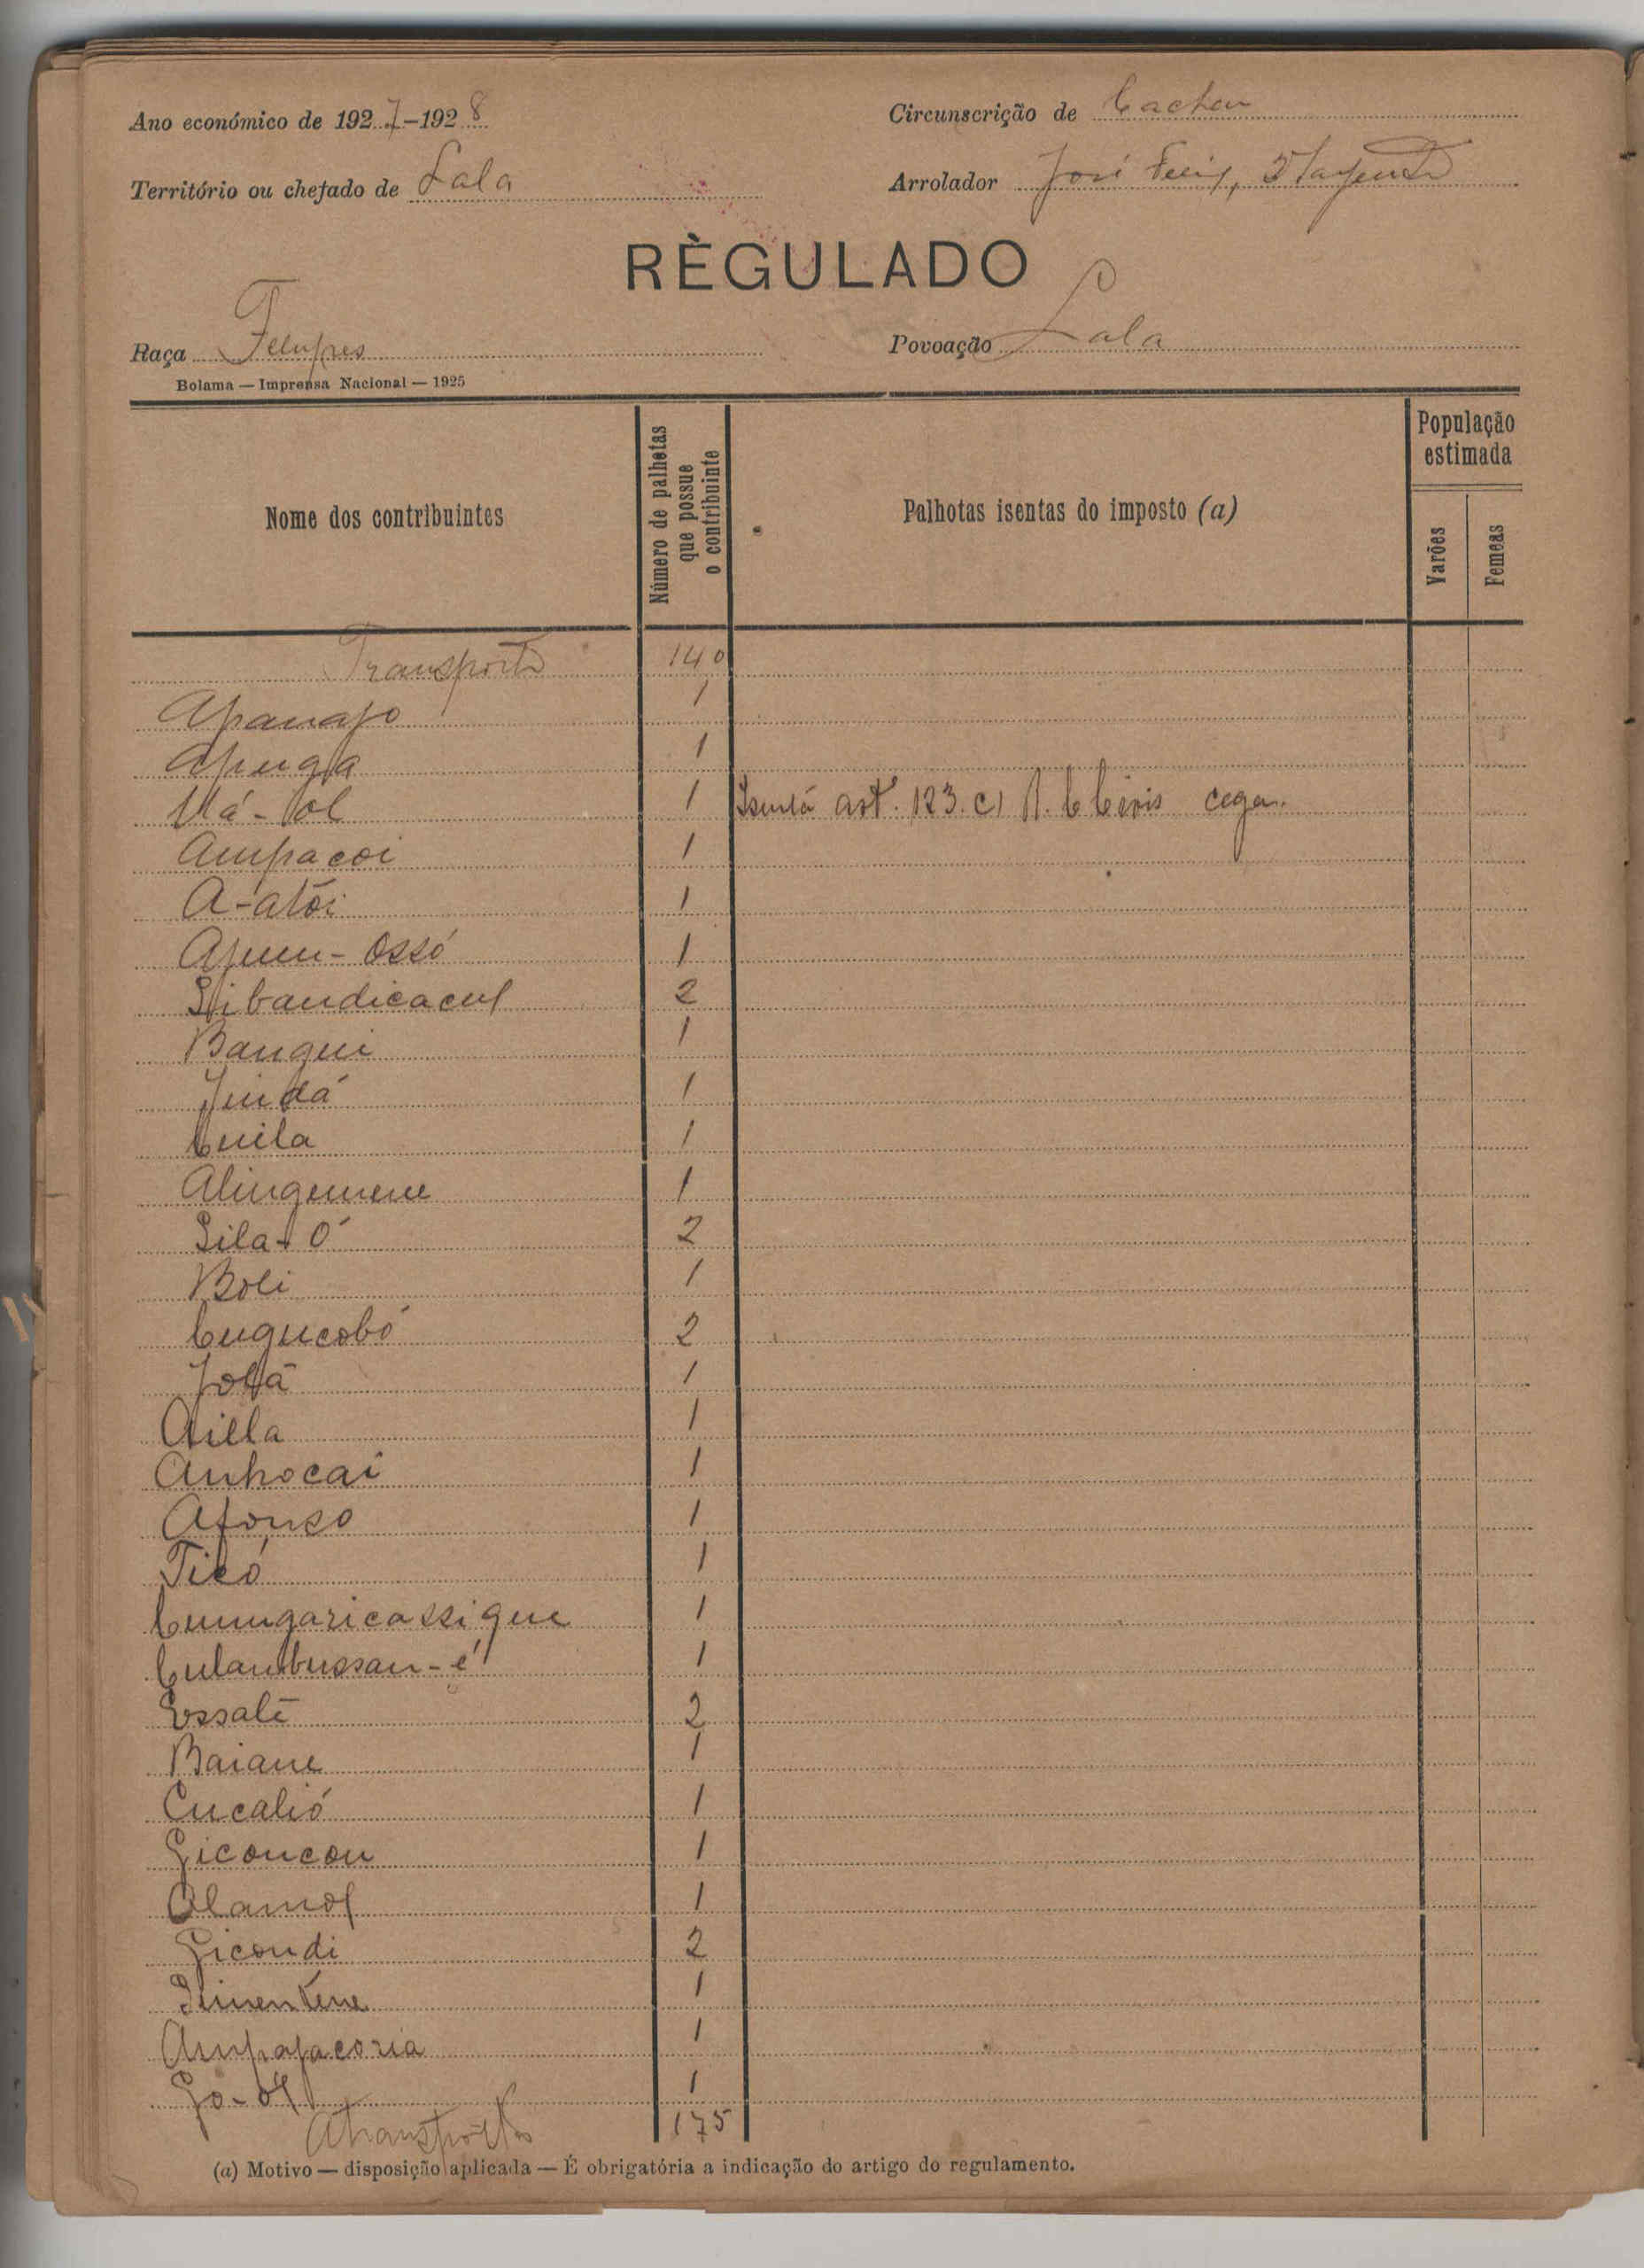 Ano económico de 1927-1928
Circunscrição de Cacheu
Território ou chefado de Lala
Arrolador José
RÈGULADO
Raça Felupes
Povoação Lala
Bolama — Imprensa Nacional — 1925
Nome dos contribuintes
Número de palhetas que possue o contribuinte
Palhotas isentas do imposto (a)
População estimada
Varões
Femeas
Transporte 140
Apanapo 1
1
1 art. 123. c)
Ampacoi 1
A-atói 1
Apum-Ossó 1
2
Bangui 1
1
Cuila 1
Alingemene 1
Sila-Ó 2
Boli 1
Cugucobó 2
1
Ailla 1
Anhocai 1
Afonso 1
Ticó 1
Cumugaricassique 1
Culambussan-é 1
Essalé 2
Baiane 1
Cucalió 1
Giconcon 1
Alamol 1
Gicondi 2
1
1
1
A transportar 175
(a) Motivo — disposição aplicada — É obrigatória a indicação do artigo do regulamento.